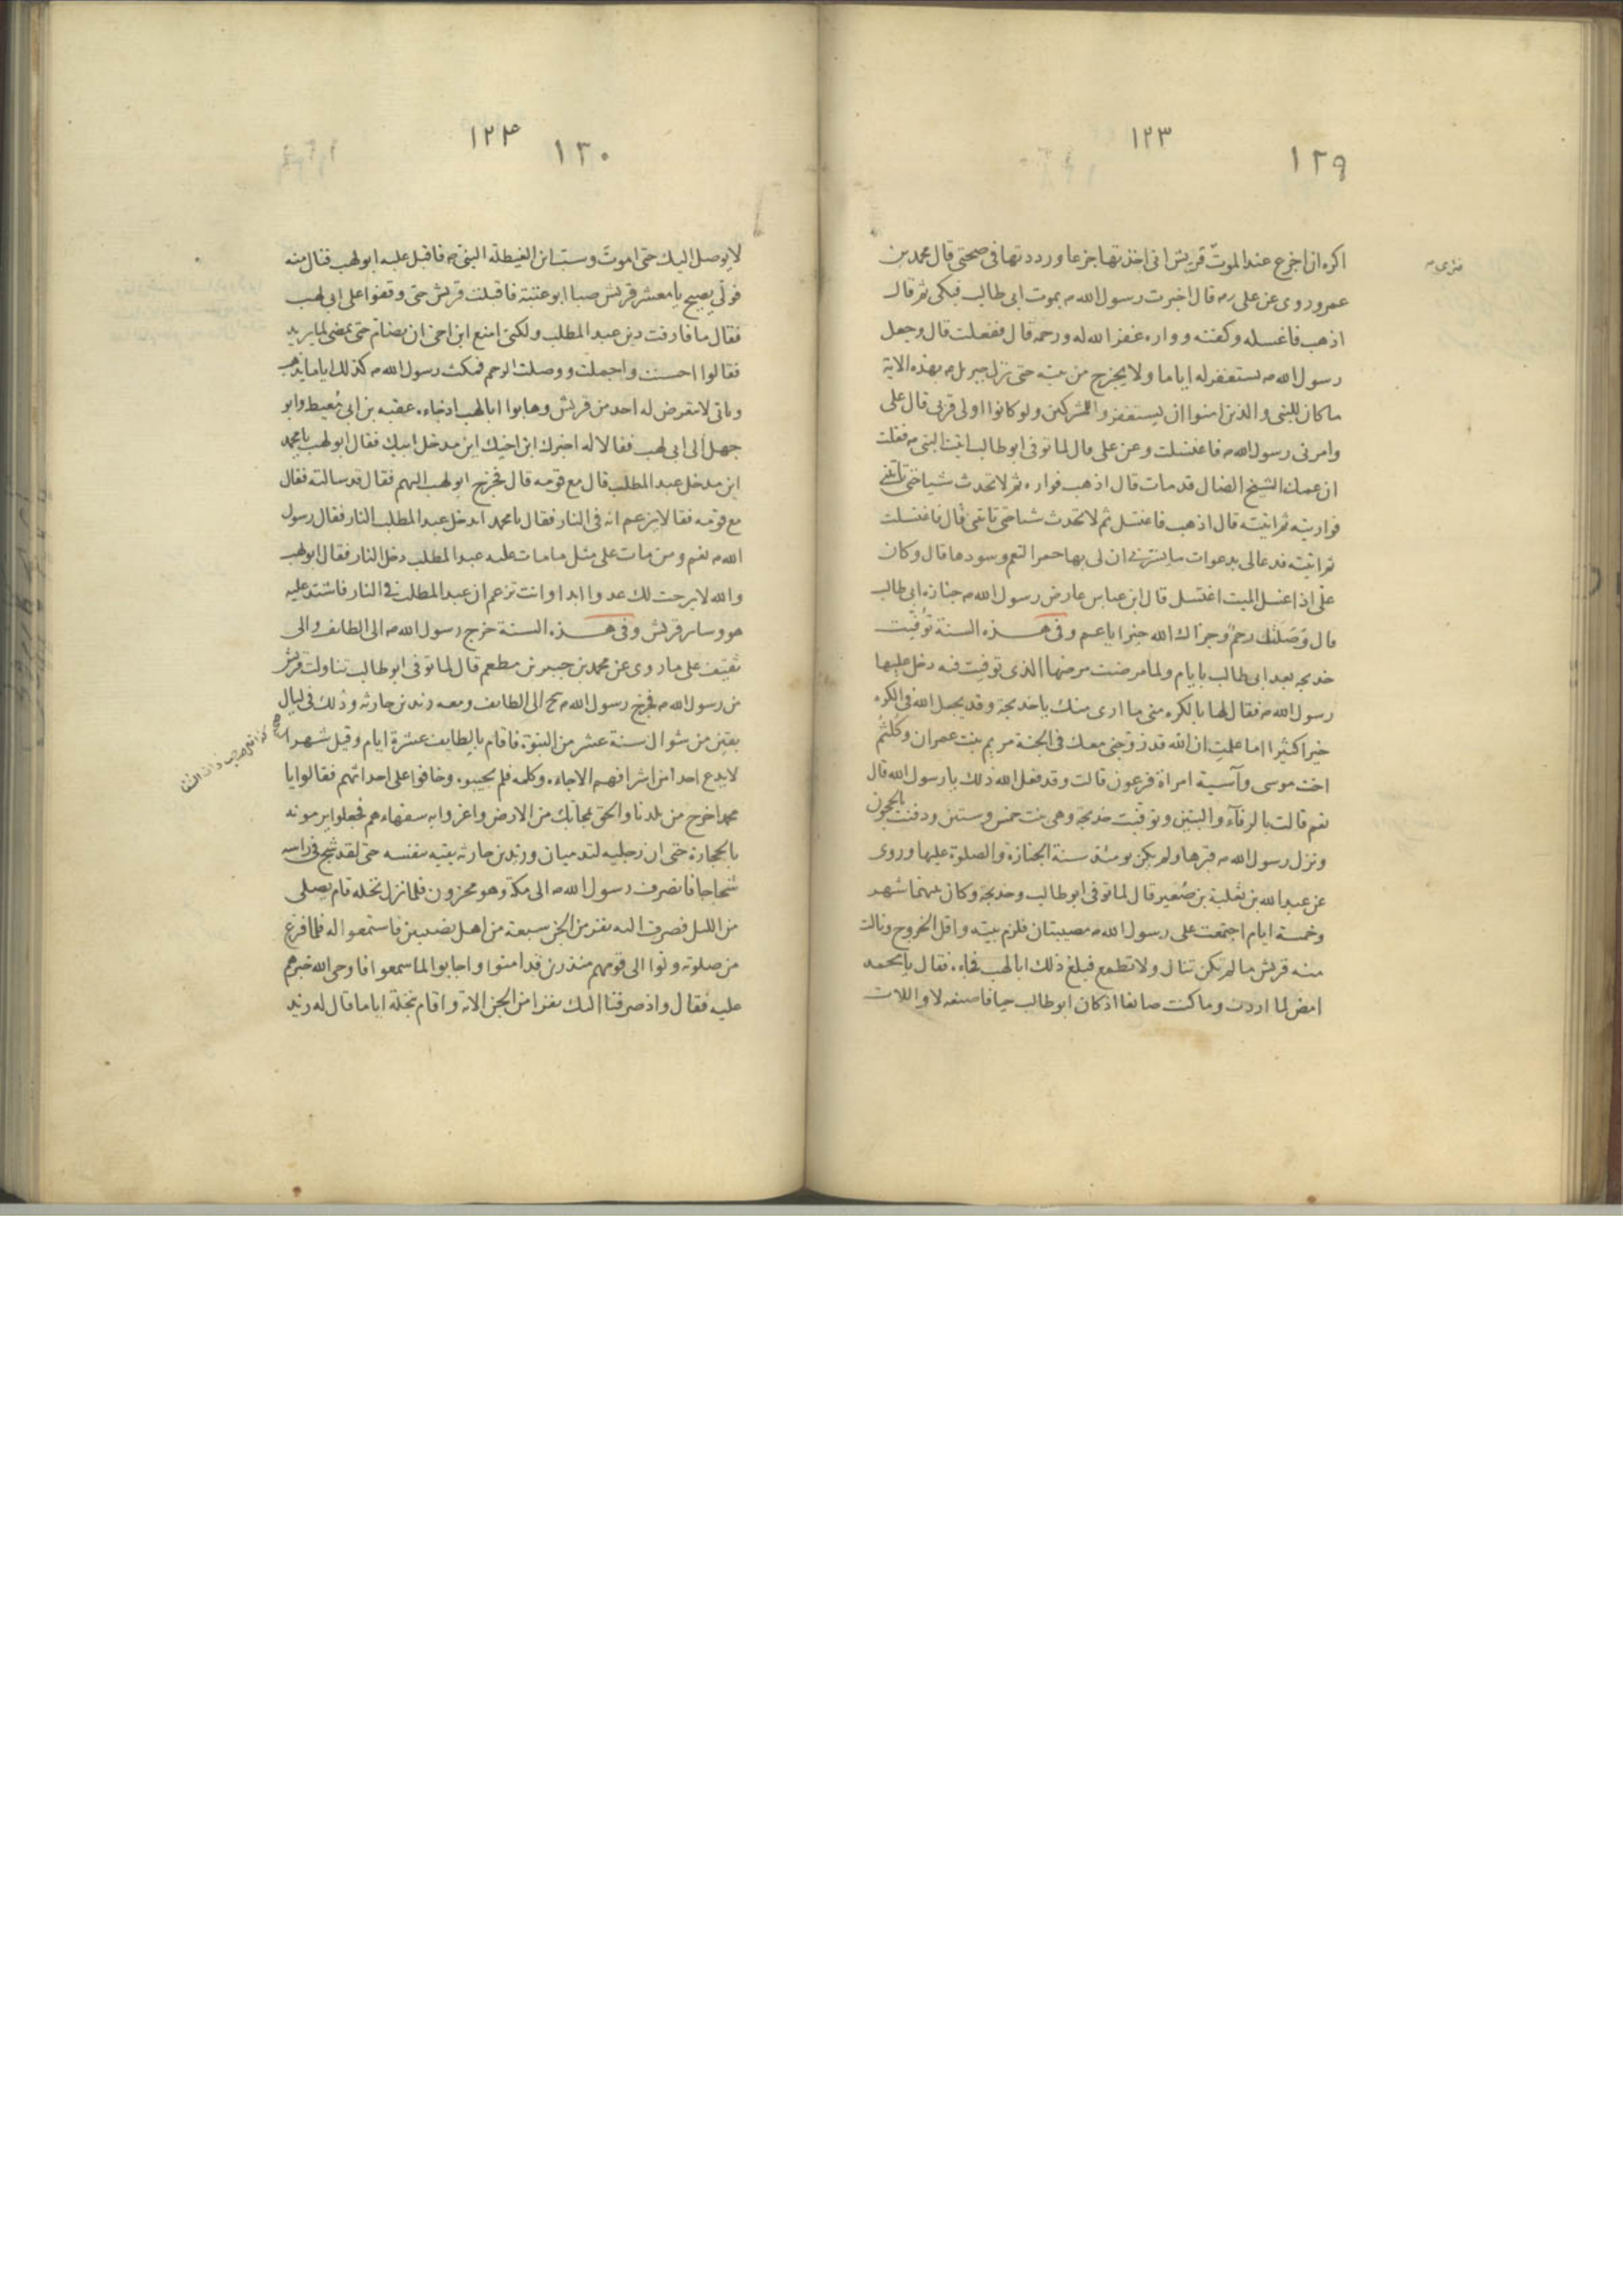 ١٢٣
١٢٩
اكره ان اجزع عند الموت قريش انى اخذتها جزعا ورددتها فى صحتى قال محمد بن
عمر وروى عن على رضه قال اخبرت رسول الله صم بموت ابى طالب فبكى ثم قال
اذهب فاغسله وكفنه وواره غفر الله له ورحمه قال ففعلت قال وجعل
رسول الله صم يستغفر له اياما ولا يخرج من بيته حتى نزل جبريل عم بهذه الاية
ما كان للنبى والذين امنوا ان يستغفروا للمشركين ولو كانوا اولى قربى قال على
وامرنى رسول الله صم فاغتسلت وعن على قال لما توفى ابو طالب اتيت النبى صم فقلت
ان عمك الشيخ الضال قد مات قال اذهب فواره ثم لا تحدث شيا حتى تاتينى
فواريته ثم اتيته قال اذهب فاغتسل ثم لا تحدث شيا حتى تاتنى قال فاغتسلت
ثم اتيته فدعا لى بدعوات ما يسرنى ان لى بها حمر النعم وسودها قال وكان
على اذا غسل الميت اغتسل قال ابن عباس عارض رسول الله صم جنازة ابى طالب
قال وصلتك رحم وجزاك الله خيرا يا عم وفى هذه السنة توفيت
خديجه بعد ابى طالب بايام ولما مرضت مرضها الذى توفيت فيه دخل عليها
رسول الله صم فقال لها بالكره منى ما ارى منك يا خديجة وقد يجعل الله فى الكره
خيرا كثيرا اما علمت ان الله قد زوجنى معك فى الجنة مريم بنت عمران وكلثم
اخت موسى وآسية امراة فرعون قالت وقد فعل الله ذلك يا رسول الله قال
نعم قالت بالرفآء والبنين وتوفيت خديجة وهى بنت خمس وستين ودفنت بالحجون
ونزل رسول الله صم قبرها ولم يكن يومئذ سنة الجنازة والصلوة عليها وروى
عن عبد الله بن ثعلبة بن صُعير قال لما توفى ابو طالب وخديجة وكان بينهما شهر
وخمسة ايام اجتمعت على رسول الله صم مصيبتان فلزم بيته واقل الخروج ونالت
منه قريش ما لم تكن تنال ولا تطمع فبلغ ذلك ابا لهب فجاءه فقال يا محمد
امض لما اردت وما كنت صانعا اذ كان ابو طالب حيا فاصنعه لا واللات
١٢٤
١٣٠
لا يوصل اليك حتى اموت وسب ابن الغيطلة النبى صم فاقبل عليه ابو لهب فنال منه
فولى يصيح يا معشر قريش صبا ابو عتبة فاقبلت قريش حتى وقفوا على ابى لهب
فقال ما فارقت دين عبد المطلب ولكنى امنع ابن اخى ان يضام حتى يمضى لما يريد
فقالوا احسنت واجملت ووصلت الرحم فمكث رسول الله صم كذلك اياما يذهب
وياتى لا يعرض له احد من قريش وهابوا ابا لهب اذ جاءه عقبه بن ابى مُعيط وابو
جهل الى ابى لهب فقالا له اخبرك ابن اخيك اين مدخل ابيك فقال ابو لهب يا محمد
اين مدخل عبد المطلب قال مع قومه قال فخرج ابو لهب اليهم فقال قد سالته فقال
مع قومه فقالا يزعم انه فى النار فقال يا محمد ايدخل عبد المطلب النار فقال رسول
الله صم نعم ومن مات على مثل ما مات عليه عبد المطلب دخل النار فقال ابو لهب
والله لا برحت لك عدوا ابدا وانت تزعم ان عبد المطلب فى النار فاشتد عليه
هو وساير قريش وفى هذه السنة خرج رسول الله صم الى الطايف والى
ثقيف على ما روى عن محمد بن جبير بن مطعم قال لما توفى ابو طالب تناولت قريش
من رسول الله صم فخرج رسول الله صم الى الطايف ومعه زيد بن حارثه وذلك فى ليال
بقين من شوال سنة عشر من النبوة فاقام بالطايف عشرة ايام وقيل شهرا
لا يدع احدا من اشرافهم الا جاءه وكلمه فلم يجيبوه وخافوا على احداثهم فقالوا يا
محمد اخرج من بلدنا والحق بمجابك من الارض واغروا به سفهاءهم فجعلوا يرمونه
بالحجارة حتى ان رجليه لتدميان وزيد بن حارثه يقيه بنفسه حتى لقد شج فى راسه
شجاجا فانصرف رسول الله صم الى مكة وهو محزون فلما نزل نخله قام يصلى
من الليل فصرف اليه نفر من الجن سبعة من اهل نصيبين فاستمعوا له فلما فرغ
من صلوته ولوا الى قومهم منذرين قد امنوا واجابوا لما سمعوا فاوحى الله خبرهم
عليه فقال واذ صرفنا اليك نفرا من الجن الاية واقام بنخلة اياما قال له زيد